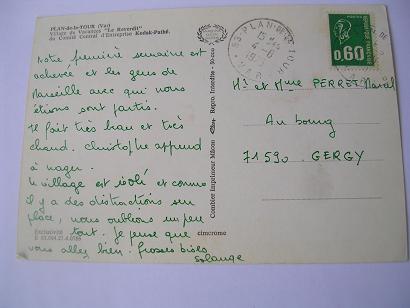 PLAN-de-la-TOUR (Var)
Village de Vacances "Le Reverdi"
du Comité Central d'Entreprise Kodak-Pathé.
Notre première semaine est
achevée et les gens de
Marseille avec qui nous
étions sont partis.
Il fait très beau et très
chaud. Christophe apprend
à nager.
Le village est isolé et comme
il y a des distractions sur
place, nous oublions un peu
tout. Je pense que
vous allez bien. Grosses bises.
Solange
Exclusivité
cimcrome
Combier Imprimeur Mâcon
Repro. Interdite
83 PLAN DE LA TOUR
4-6
VAR
0,60
Mr et Mme PERRET Marcel
Au bourg
71590 GERGY